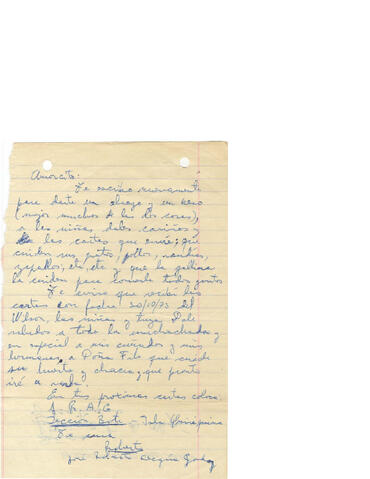 Amorcito:
Te escribo nuevamente
para darte un abrazo y un beso
(mejor muchos de las dos cosas),
a las niñas dales cariños y
las cartas que envié; que
cuiden sus gatos, pollos,
etc, etc y que la gallina
la cuiden para comerla todos juntos
Te aviso que recibí las
cartas con fecha 20/10/73 del
Wilson, las niñas y tuya. Dale
saludos a toda la muchachada y
en especial a mis cuñados y mis
hermanos, a Doña Filo que cuide
su huerto y chacra, que pronto
iré a verla.
En tus próximas cartas coloca
A. R. A. C.
Sección Este - Isla Quiriquina
Te ama
Roberto
José Roberto